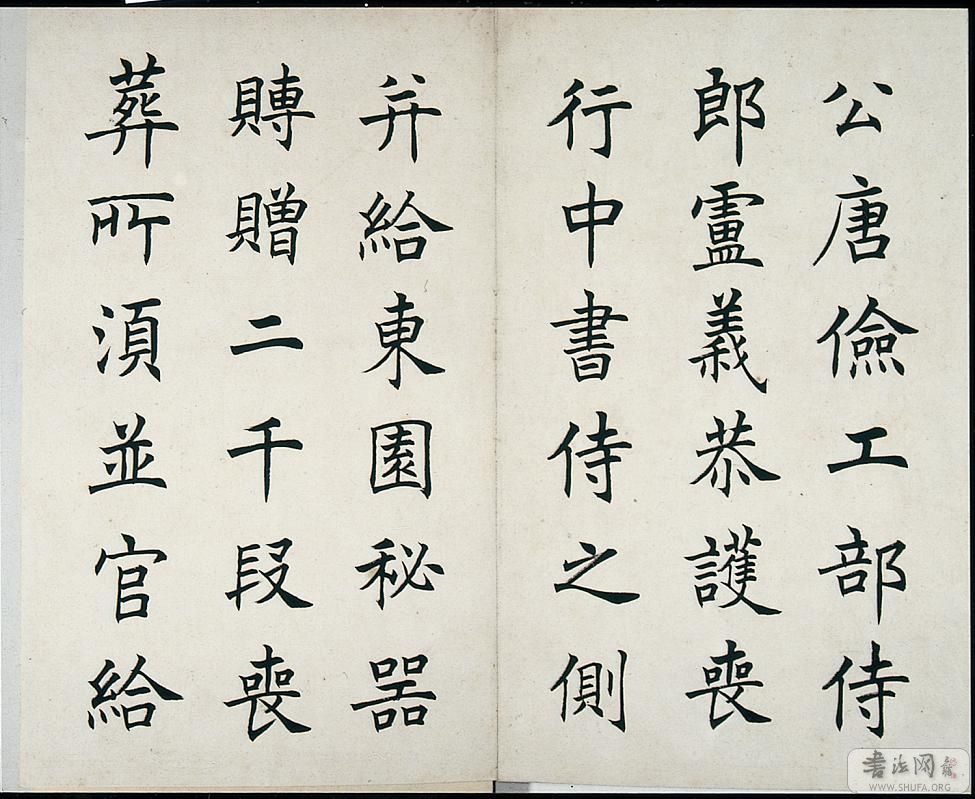 公唐儉工部侍
郎盧義恭護喪
行中書侍之側
并給東園秘器
賻贈二千段喪
葬所湏並官給
書法网
WWW.SHUFA.ORG